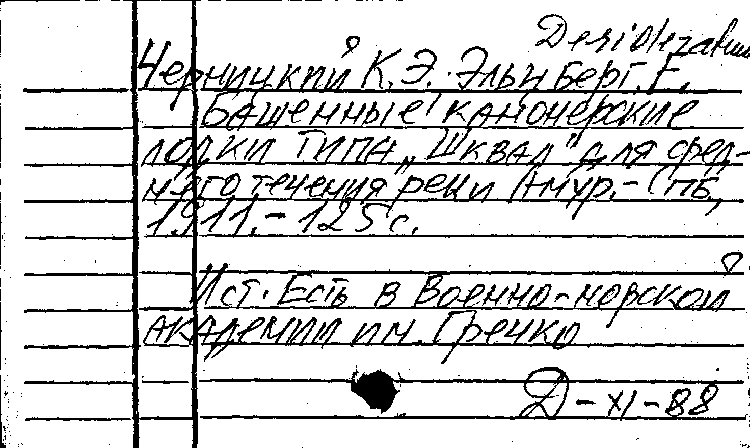 Desiderata
Черницкий К.Э. Эльнберг. Е.
Башенные канонерские
лодки типа „Шквал" для сред-
него течения реки Амур. - Спб,
1911. - 125 с.
Ист. Есть в Военно-морской
Академии им. Гречко
Д-XI-88